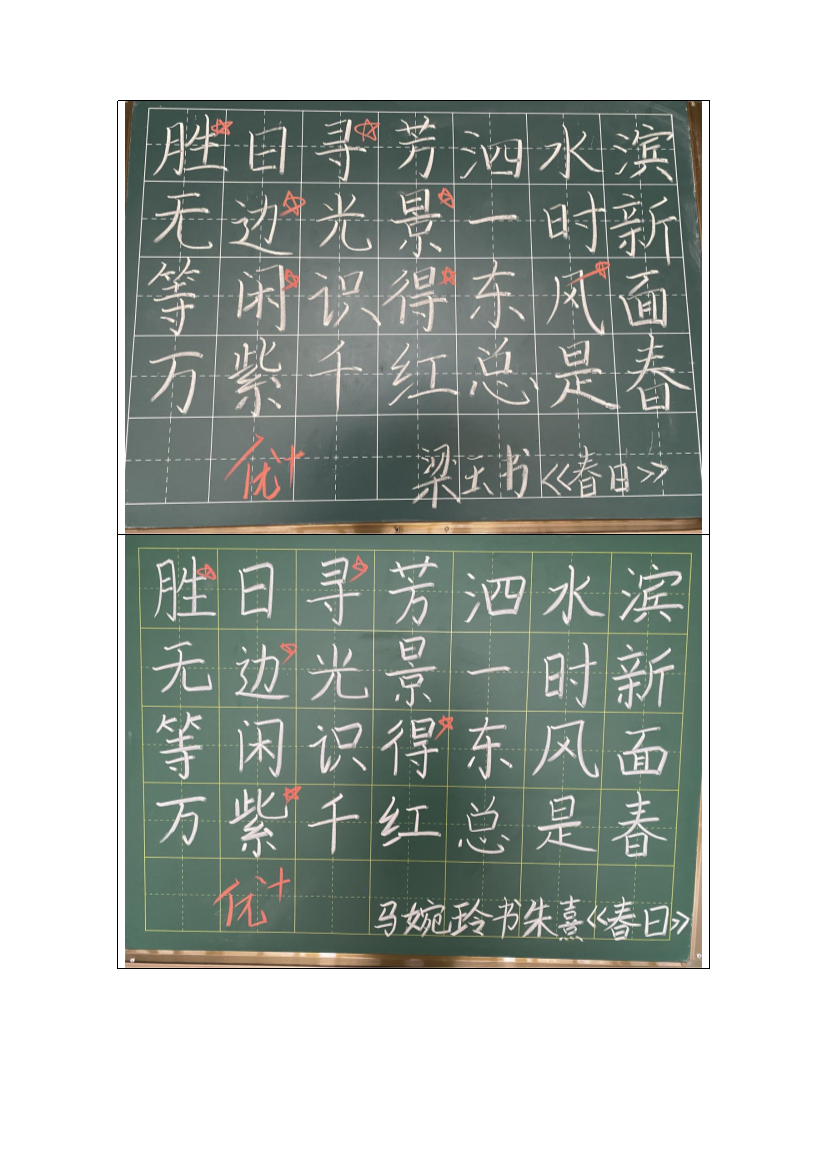 胜日寻芳泗水滨
无边光景一时新
等闲识得东风面
万紫千红总是春
优+
梁玉书《春日》
胜日寻芳泗水滨
无边光景一时新
等闲识得东风面
万紫千红总是春
优+
马婉玲书朱熹《春日》